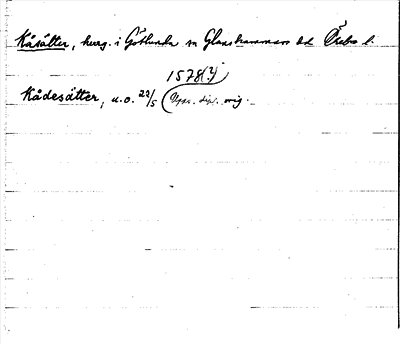 Kåsätter, herrg. i Götlunda sn Glanshammars hd Örebro l.
1578(?)
Kådesätter, u.o. 22/5 (Uppr. dipl. orig.